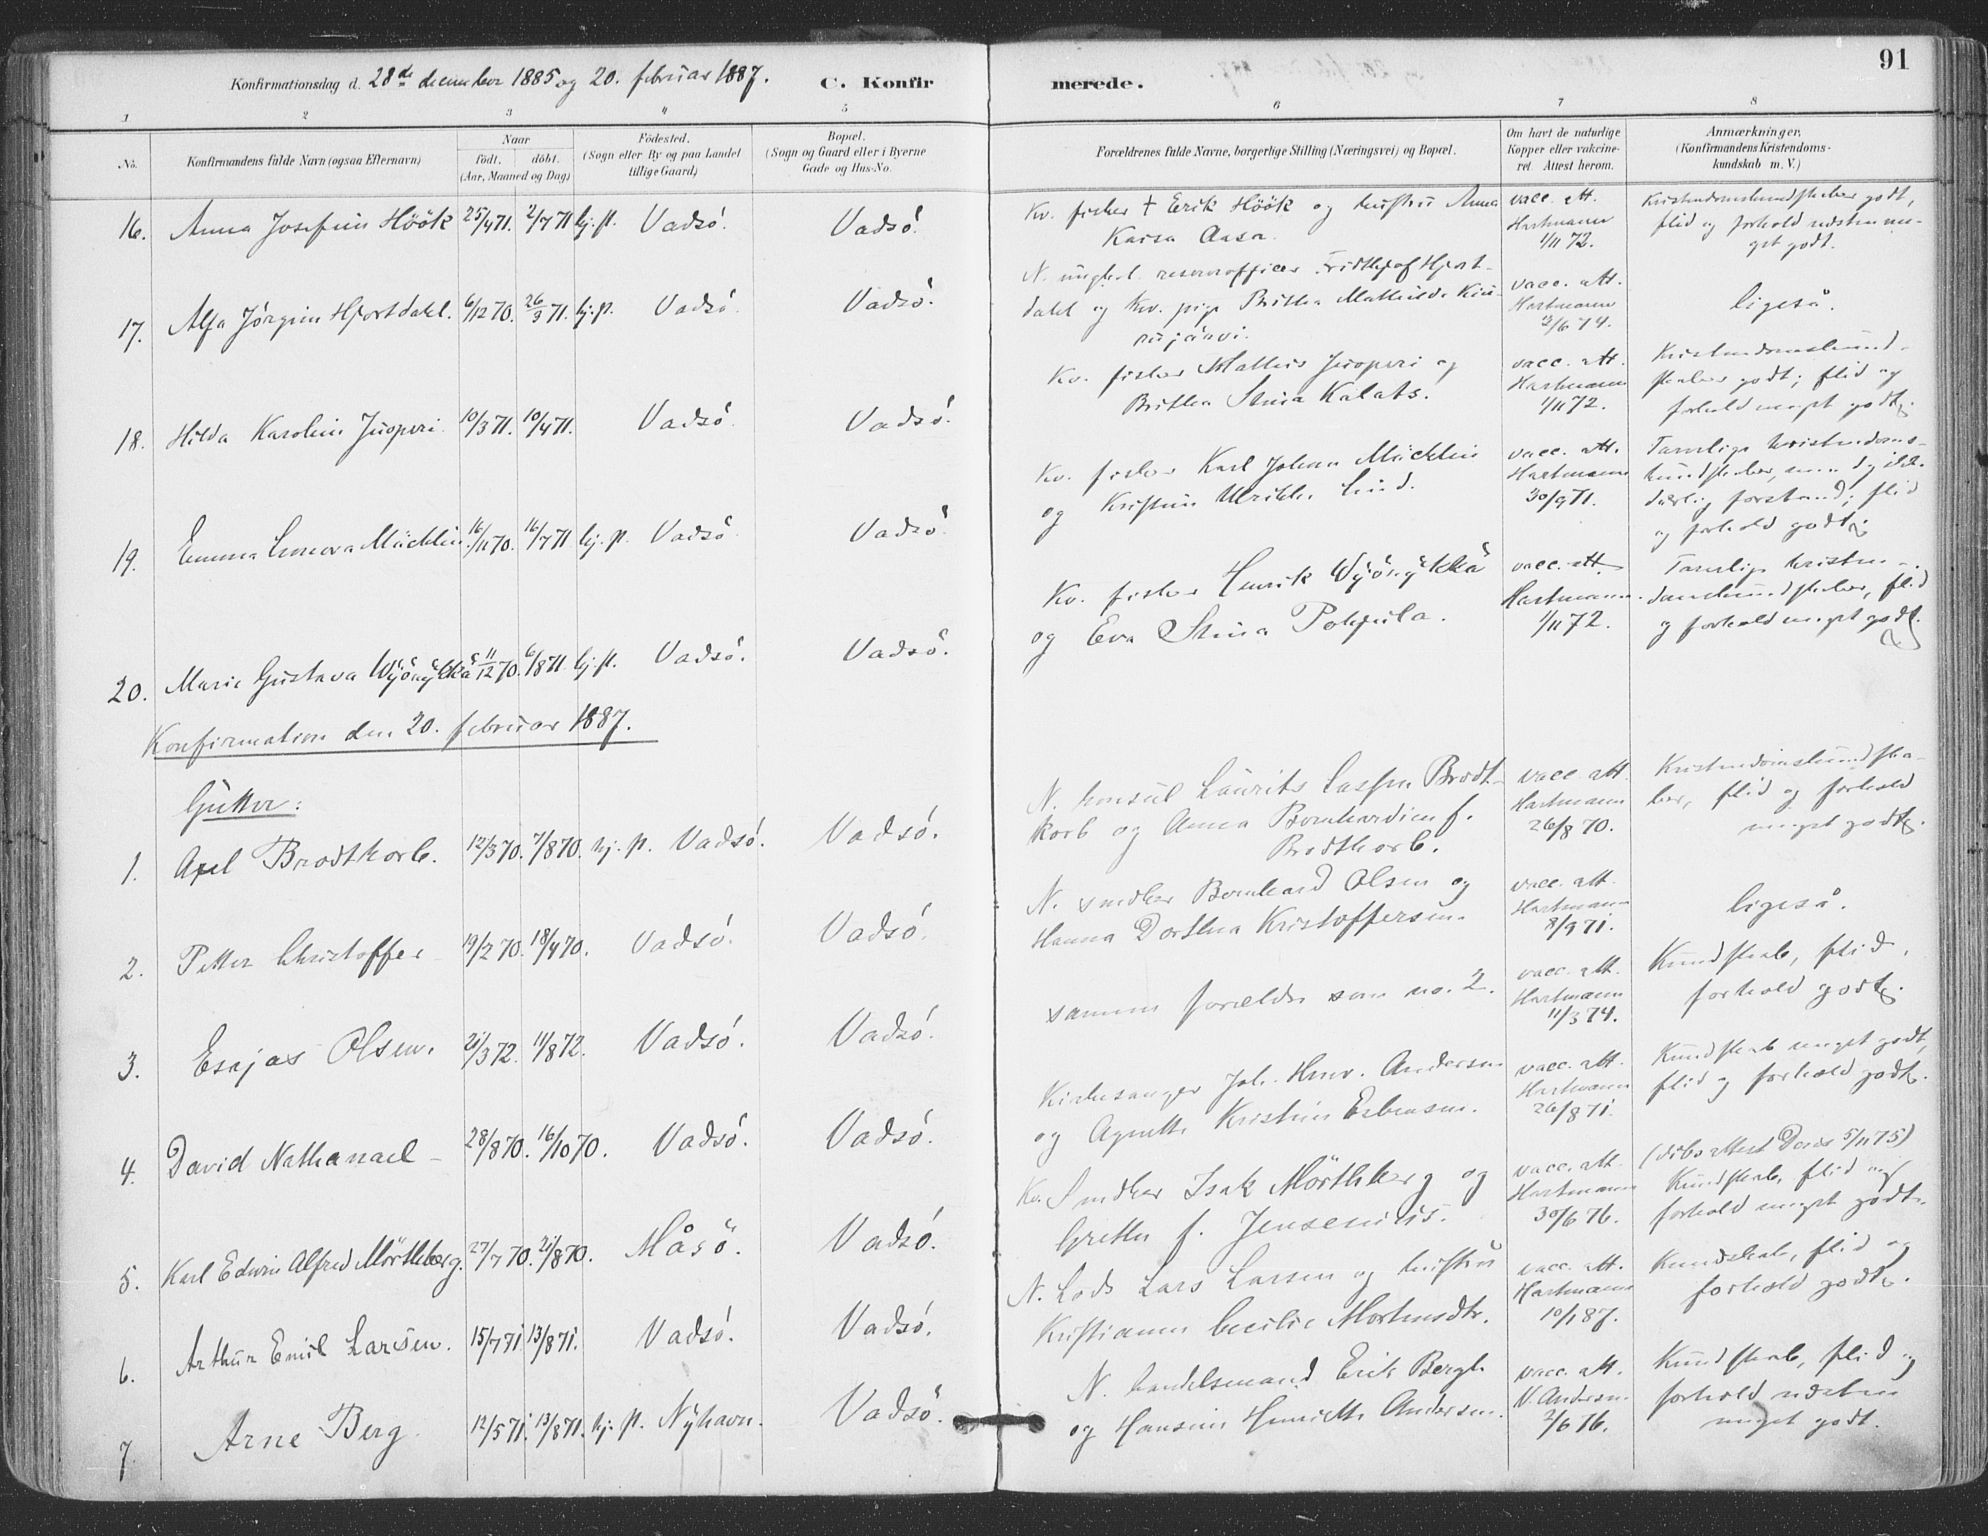 91
Konfirmationsdag d. 28de december 1885 og 20. februar 1887.
C. Konfirmerede.
1 2 3 4 5 6 7 8
No.
Konfirmandens fulde Navn (ogsaa Efternavn)
Naar
födt. döbt.
(Aar, Maaned og Dag)
Födested.
(Sogn eller By og paa Landet
tillige Gaard)
Bopæl.
(Sogn og Gaard eller i Byerne
Gade og Hus-No.
Forældrenes fulde Navne, borgerlige Stilling (Næringsvei) og Bopæl.
Om havt de naturlige
Kopper eller vakcine-
ret. Attest herom.
Anmærkninger.
(Konfirmandens Kristendoms-
kundskab m. V.)
16. Anna Josefine Höök 25/4 71. 2/7 71 hj. p. Vadsö. Vadsö.
Kv. fisker † Erik Höök og hustru Anna
Kaisa Aasa.
vacc. att.
Hartmann
1/11 72.
Kristendomskundskaber godt,
flid og forhold udstm me-
get godt.
17. Alfa Jörgine Hjortdahl. 6/12 70. 26/3 71. hj. p. Vadsö. Vadsö.
N. ungkl. reserveofficer Fridthjof Hjort-
dahl og Kv. pige Britha Mathilde
vacc. att.
Hartmann
2/6 74.
ligeså.
18. Hilda Karoline Juoperi 10/3 71. 10/4 71. Vadsö. Vadsö.
Kv. fisker Mathis Juoperi og
Britha Stina Kalats.
vacc. att.
Hartmann
1/11 72.
Kristendomskund-
skaber godt; flid og
forhold meget godt.
19. Emma Lenora Mäcklin 16/11 70. 16/7 71 hj. p. Vadsö Vadsö.
Kv. fisker Karl Johan Mäcklin
og Kristine Ulrikka Lind.
vacc. att.
Hartmann
30/9 71.
Tarvelige kristendoms-
kundskaber, men
dårlig forstand; flid
og forhold godt.
20. Marie Gustava Wyörykkä 11/12 70. 6/8 71 hj. p. Vadsö. Vadsö.
Kv. fisker Henrik Wyörykkä
og Eva Stina Pohjula.
vacc. att.
Hartmann.
1/11 72.
Tarvelige kristen-
domskundskaber, flid
og forhold meget godt.
Konfirmation den 20. februar 1887.
Gutter:
1. Axel Brodtkorb. 12/3 70. 7/8 70. hj. p. Vadsö. Vadsö.
N. konsul Laurits Lassen Brodt-
korb og Anna Bernhardine f.
Brodtkorb.
vacc att.
Hartmann
26/8 70.
Kristendomskundska-
ber, flid og forhold
meget godt.
2. Petter Christoffer 19/2 70. 18/4 70. Vadsö. Vadsö.
N. snedker Bernhard Olsen og
Hanna Dorthea Kristoffersen.
vacc. att.
Hartmann
8/9 71.
ligeså.
3. Esajas Olsen. 21/3 72. 11/8 72. Vadsö. Vadsö.
samme forældre som no. 2.
vacc. att.
Hartmann
11/3 74.
Kundskab, flid,
forhold godt.
4. David Nathanael 28/8 70. 16/10 70. Vadsö. Vadsö.
Kirkesanger Joh. Henr. Andersen
og Agnethe Kristine Esbensen.
vacc. att.
Hartmann
26/8 71.
Kundskab meget godt,
flid og forhold godt.
5. Karl Edwin Alfred Mörthberg. 27/7 70. 21/8 70. Måsö. Vadsö.
Kv. Snedker Isak Mörthberg og
Grethe f. Jensenius.
vacc. att.
Hartmann
30/6 76.
(dåbsattest 5/11 75)
Kundskab, flid og
forhold meget godt.
6. Arthur Emil Larsen. 15/7 71 13/8 71. Vadsö. Vadsö.
N. Lods Lars Larsen og hustru
Kristianne Cecilie Mortensdtr.
vacc. att.
Hartmann
10/1 87.
Kundskab, flid og
forhold godt.
7. Arne Berg 12/5 71. 13/8 71. hj. p. Nyhavn. Vadsö.
N. handelsmand Erik Bergh
og Hansine Henriette Andersen.
vacc. att.
N. Andersen
2/6 76.
Kundskab, flid og
forhold udstm
meget godt.